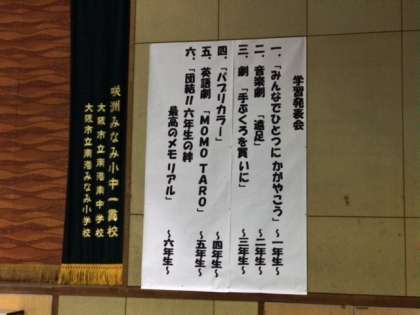 学習発表会
一、「みんなでひとつに かがやこう」 ～一年生～
二、音楽劇 「遠足」 ～二年生～
三、劇 「手ぶくろを買いに」 ～三年生～
四、「パプリカラー」 ～四年生～
五、英語劇 「MOMO TARO」 ～五年生～
六、「団結!! 六年生の絆
最高のメモリアル」 ～六年生～
咲洲みなみ小中一貫校
大阪市立南港南中学校
大阪市立南港みなみ小学校